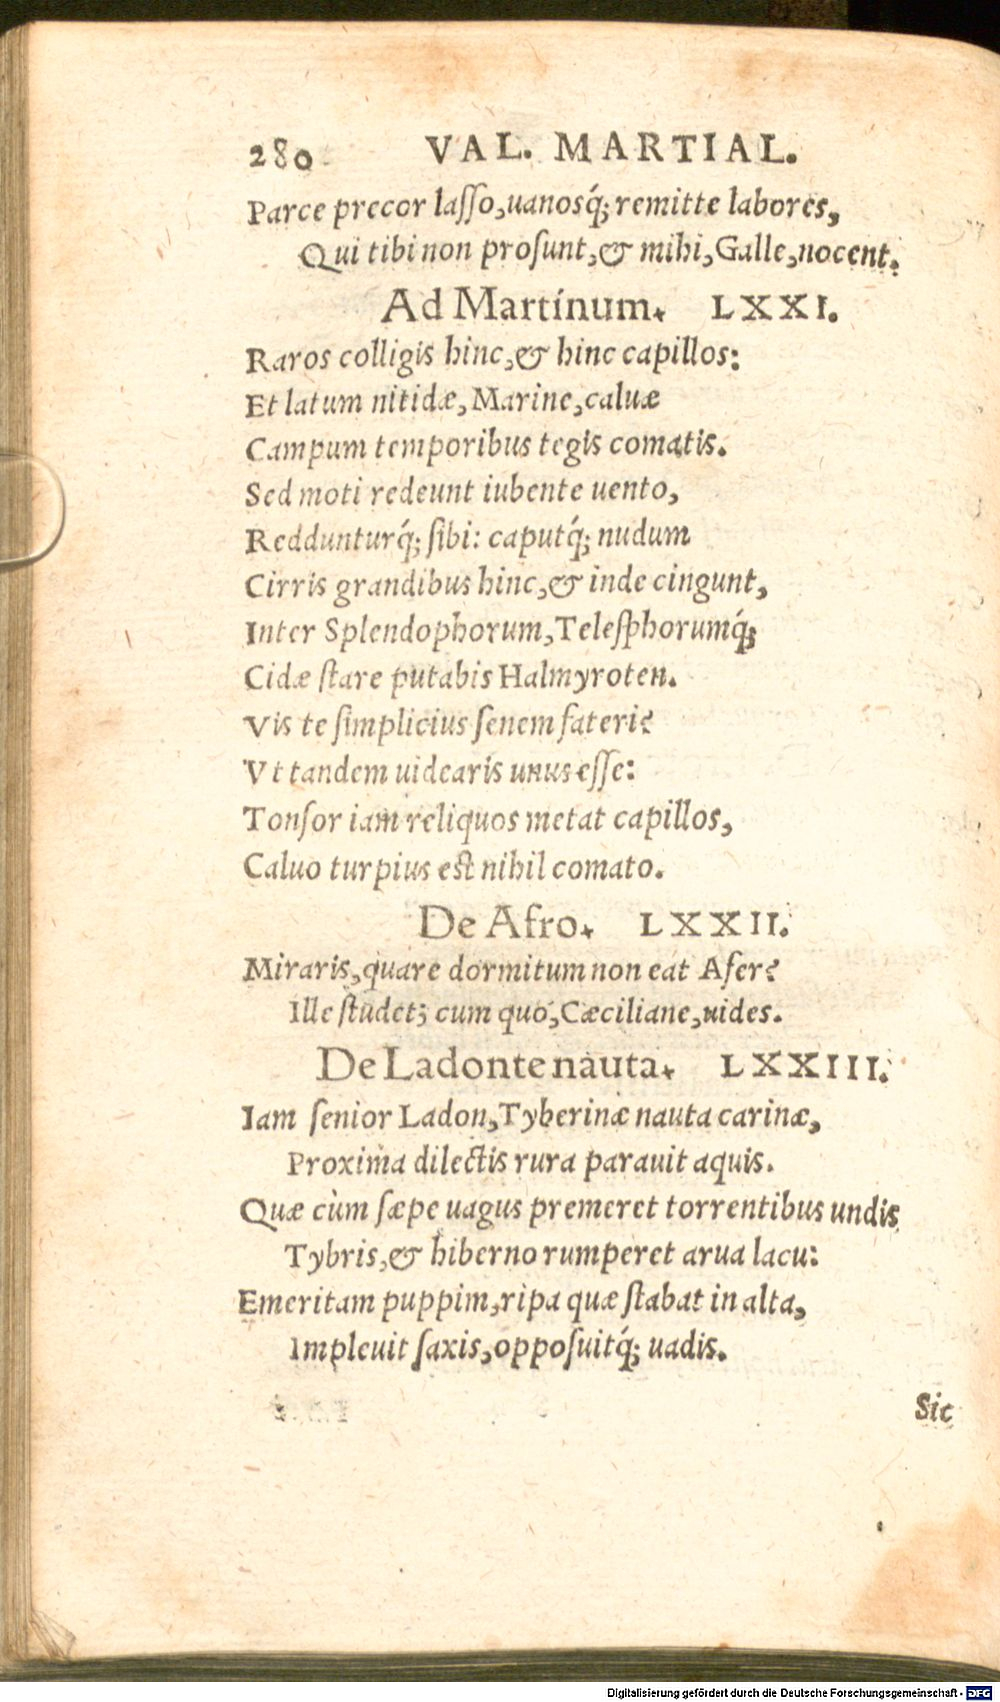 280 VAL. MARTIAL.
Parce precor lasso, uanosq́; remitte labores,
Qui tibi non prosunt, & mihi, Galle, nocent.
Ad Martinum. LXXI.
Raros colligis hinc, & hinc capillos:
Et latum nitidæ, Marine, caluæ
Campum temporibus tegis comatis.
Sed moti redeunt iubente uento,
Reddunturq́; sibi: caputq́; nudum
Cirris grandibus hinc, & inde cingunt,
Inter Splendophorum, Telesphorumq́;
Cidæ stare putabis Halmyroten.
Vis te simplicius senem fateri?
Vt tandem uidearis unus esse:
Tonsor iam reliquos metat capillos,
Caluo turpius est nihil comato.
De Afro. LXXII.
Miraris, quare dormitum non eat Afer?
Ille studet; cum quó, Cæciliane, uides.
De Ladonte nauta. LXXIII.
Iam senior Ladon, Tyberinæ nauta carinæ,
Proxima dilectis rura parauit aquis.
Quæ cùm sæpe uagus premeret torrentibus undis
Tybris, & hiberno rumperet arua lacu:
Emeritam puppim, ripa quæ stabat in alta,
Impleuit saxis, opposuitq́; uadis.
Sic
Digitalisierung gefördert durch die Deutsche Forschungsgemeinschaft - DFG